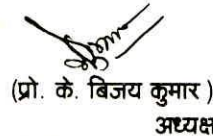 (प्रो. के. बिजय कुमार )
अध्यक्ष